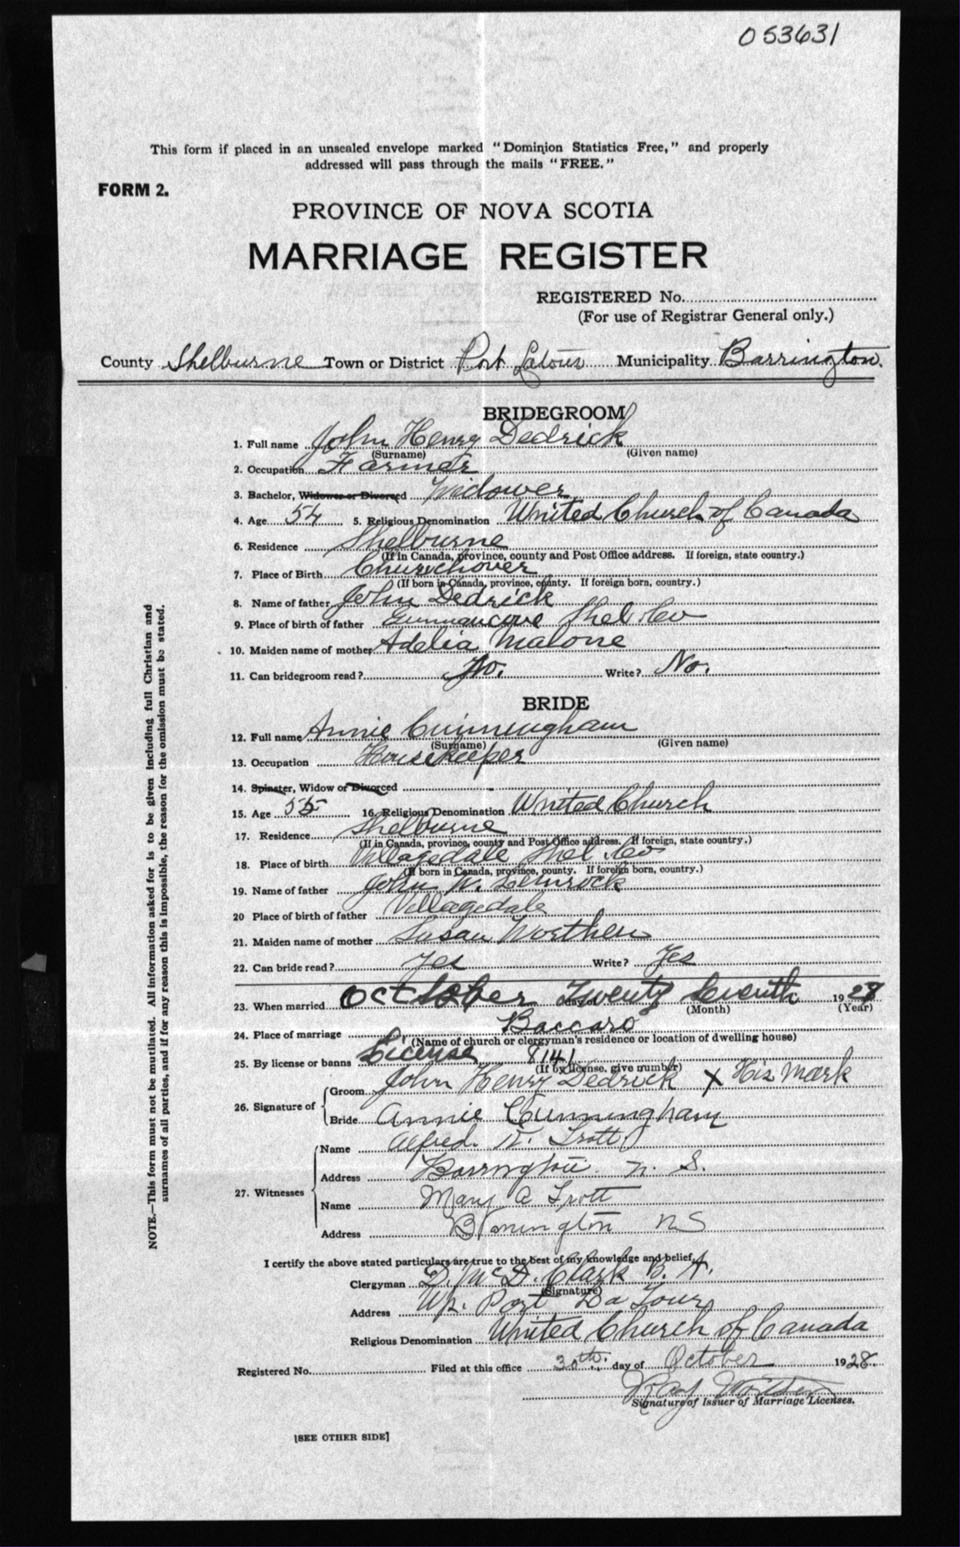 053631
This form if placed in an unsealed envelope marked "Dominion Statistics Free," and properly
addressed will pass through the mails "FREE."
FORM 2.
PROVINCE OF NOVA SCOTIA
MARRIAGE REGISTER
REGISTERED No.
(For use of Registrar General only.)
County Shelburne Town or District Port Latour Municipality Barrington.
BRIDEGROOM
1. Full name John Henry Dedrick
(Surname) (Given name)
2. Occupation Farmer
3. Bachelor, Widower or Divorced Widower
4. Age 54 5. Religious Denomination United Church of Canada
6. Residence Shelburne
(If in Canada, province, county and Post Office address. If foreign, state country.)
7. Place of Birth Churchover
(If born in Canada, province, county. If foreign born, country.)
8. Name of father John Dedrick
9. Place of birth of father Gunnincove Shel Co
10. Maiden name of mother Adelia Malone
11. Can bridegroom read? No. Write? No.
BRIDE
12. Full name Annie Cunningham
(Surname) (Given name)
13. Occupation Housekeeper
14. Spinster, Widow or Divorced
15. Age 55 16. Religious Denomination United Church
17. Residence Shelburne
(If in Canada, province, county and Post Office address. If foreign, state country.)
18. Place of birth Villagedale Shel Co
(If born in Canada, province, county. If foreign born, country.)
19. Name of father John W.
20 Place of birth of father Villagedale
21. Maiden name of mother Susan Worthen
22. Can bride read? Yes Write? Yes
23. When married October Twenty Seventh 1928
(Month) (Year)
24. Place of marriage Baccaro
(Name of church or clergyman's residence or location of dwelling house)
25. By license or banns License 8141
(If by license, give number)
26. Signature of Groom John Henry Dedrick X His Mark
Bride Annie Cunningham
27. Witnesses Name Alfred K. Trott
Address Barrington N. S.
Name Mary A Trott
Address Barrington NS
I certify the above stated particulars are true to the best of my knowledge and belief.
Clergyman D. McD. Clark B. A.
(Signature)
Address Up. Port La Tour
Religious Denomination United Church of Canada
Registered No. Filed at this office 30th. day of October 1928.
Signature of Issuer of Marriage Licenses.
[SEE OTHER SIDE]
NOTE.—This form must not be mutilated. All information asked for is to be given including full Christian and
surnames of all parties, and if for any reason this is impossible, the reason for the omission must be stated.